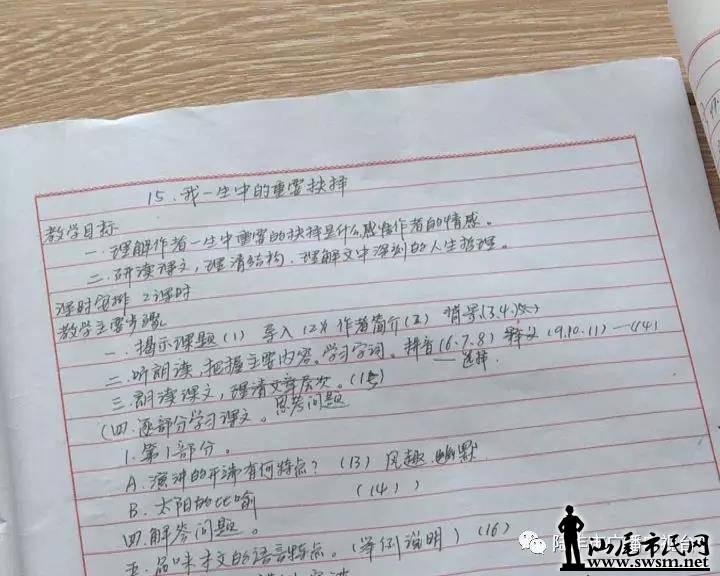 15.我一生中的重要抉择
教学目标
一.理解作者一生中重要的抉择是什么感悟作者的情感。
二.研读课文,理清结构.理解文中深刻的人生哲理。
课时安排 2课时
教学主要步骤
一.揭示课题(1) 导入(2) 作者简介(3) 背景(3.4.5)
二.听朗读.把握主要内容.学习字词。拼音(6.7.8) 释义(9.10.11)
选择.
三.朗读课文,理清文章层次。
(四.逐部分学习课文。思考问题
1.第1部分。
A.演讲的开端有何特点?(13)风趣.幽默
B.太阳的比喻 (14)
四.解答问题。
五.品味本文的语言特点。(举例说明)(16)
汕尾市民网
www.swsm.net